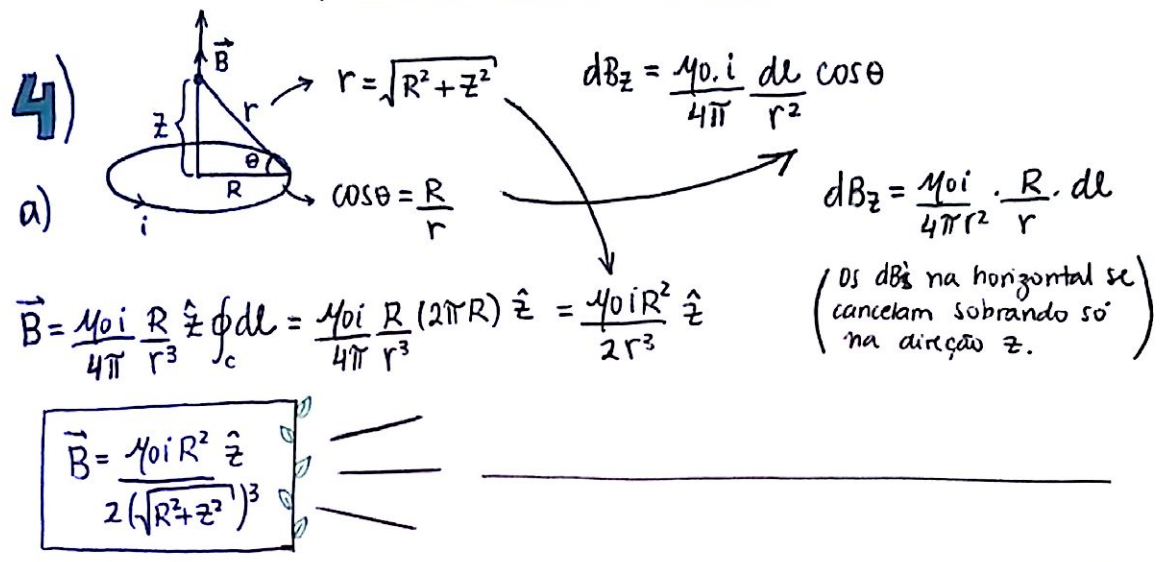 4)
a)
B⃗
Z
r
θ
R
i
r = √(R² + Z²)
cosθ = R/r
dBz = μ0.i/4π dl/r² cosθ
dBz = μ0i/4πr² . R/r . dl
(Os dB's na horizontal se
cancelam sobrando só
na direção z.)
B⃗ = μ0i/4π R/r³ ẑ ∮c dl = μ0i/4π R/r³ (2πR) ẑ = μ0iR²/2r³ ẑ
B⃗ = μ0iR² ẑ/2(√(R²+Z²))³